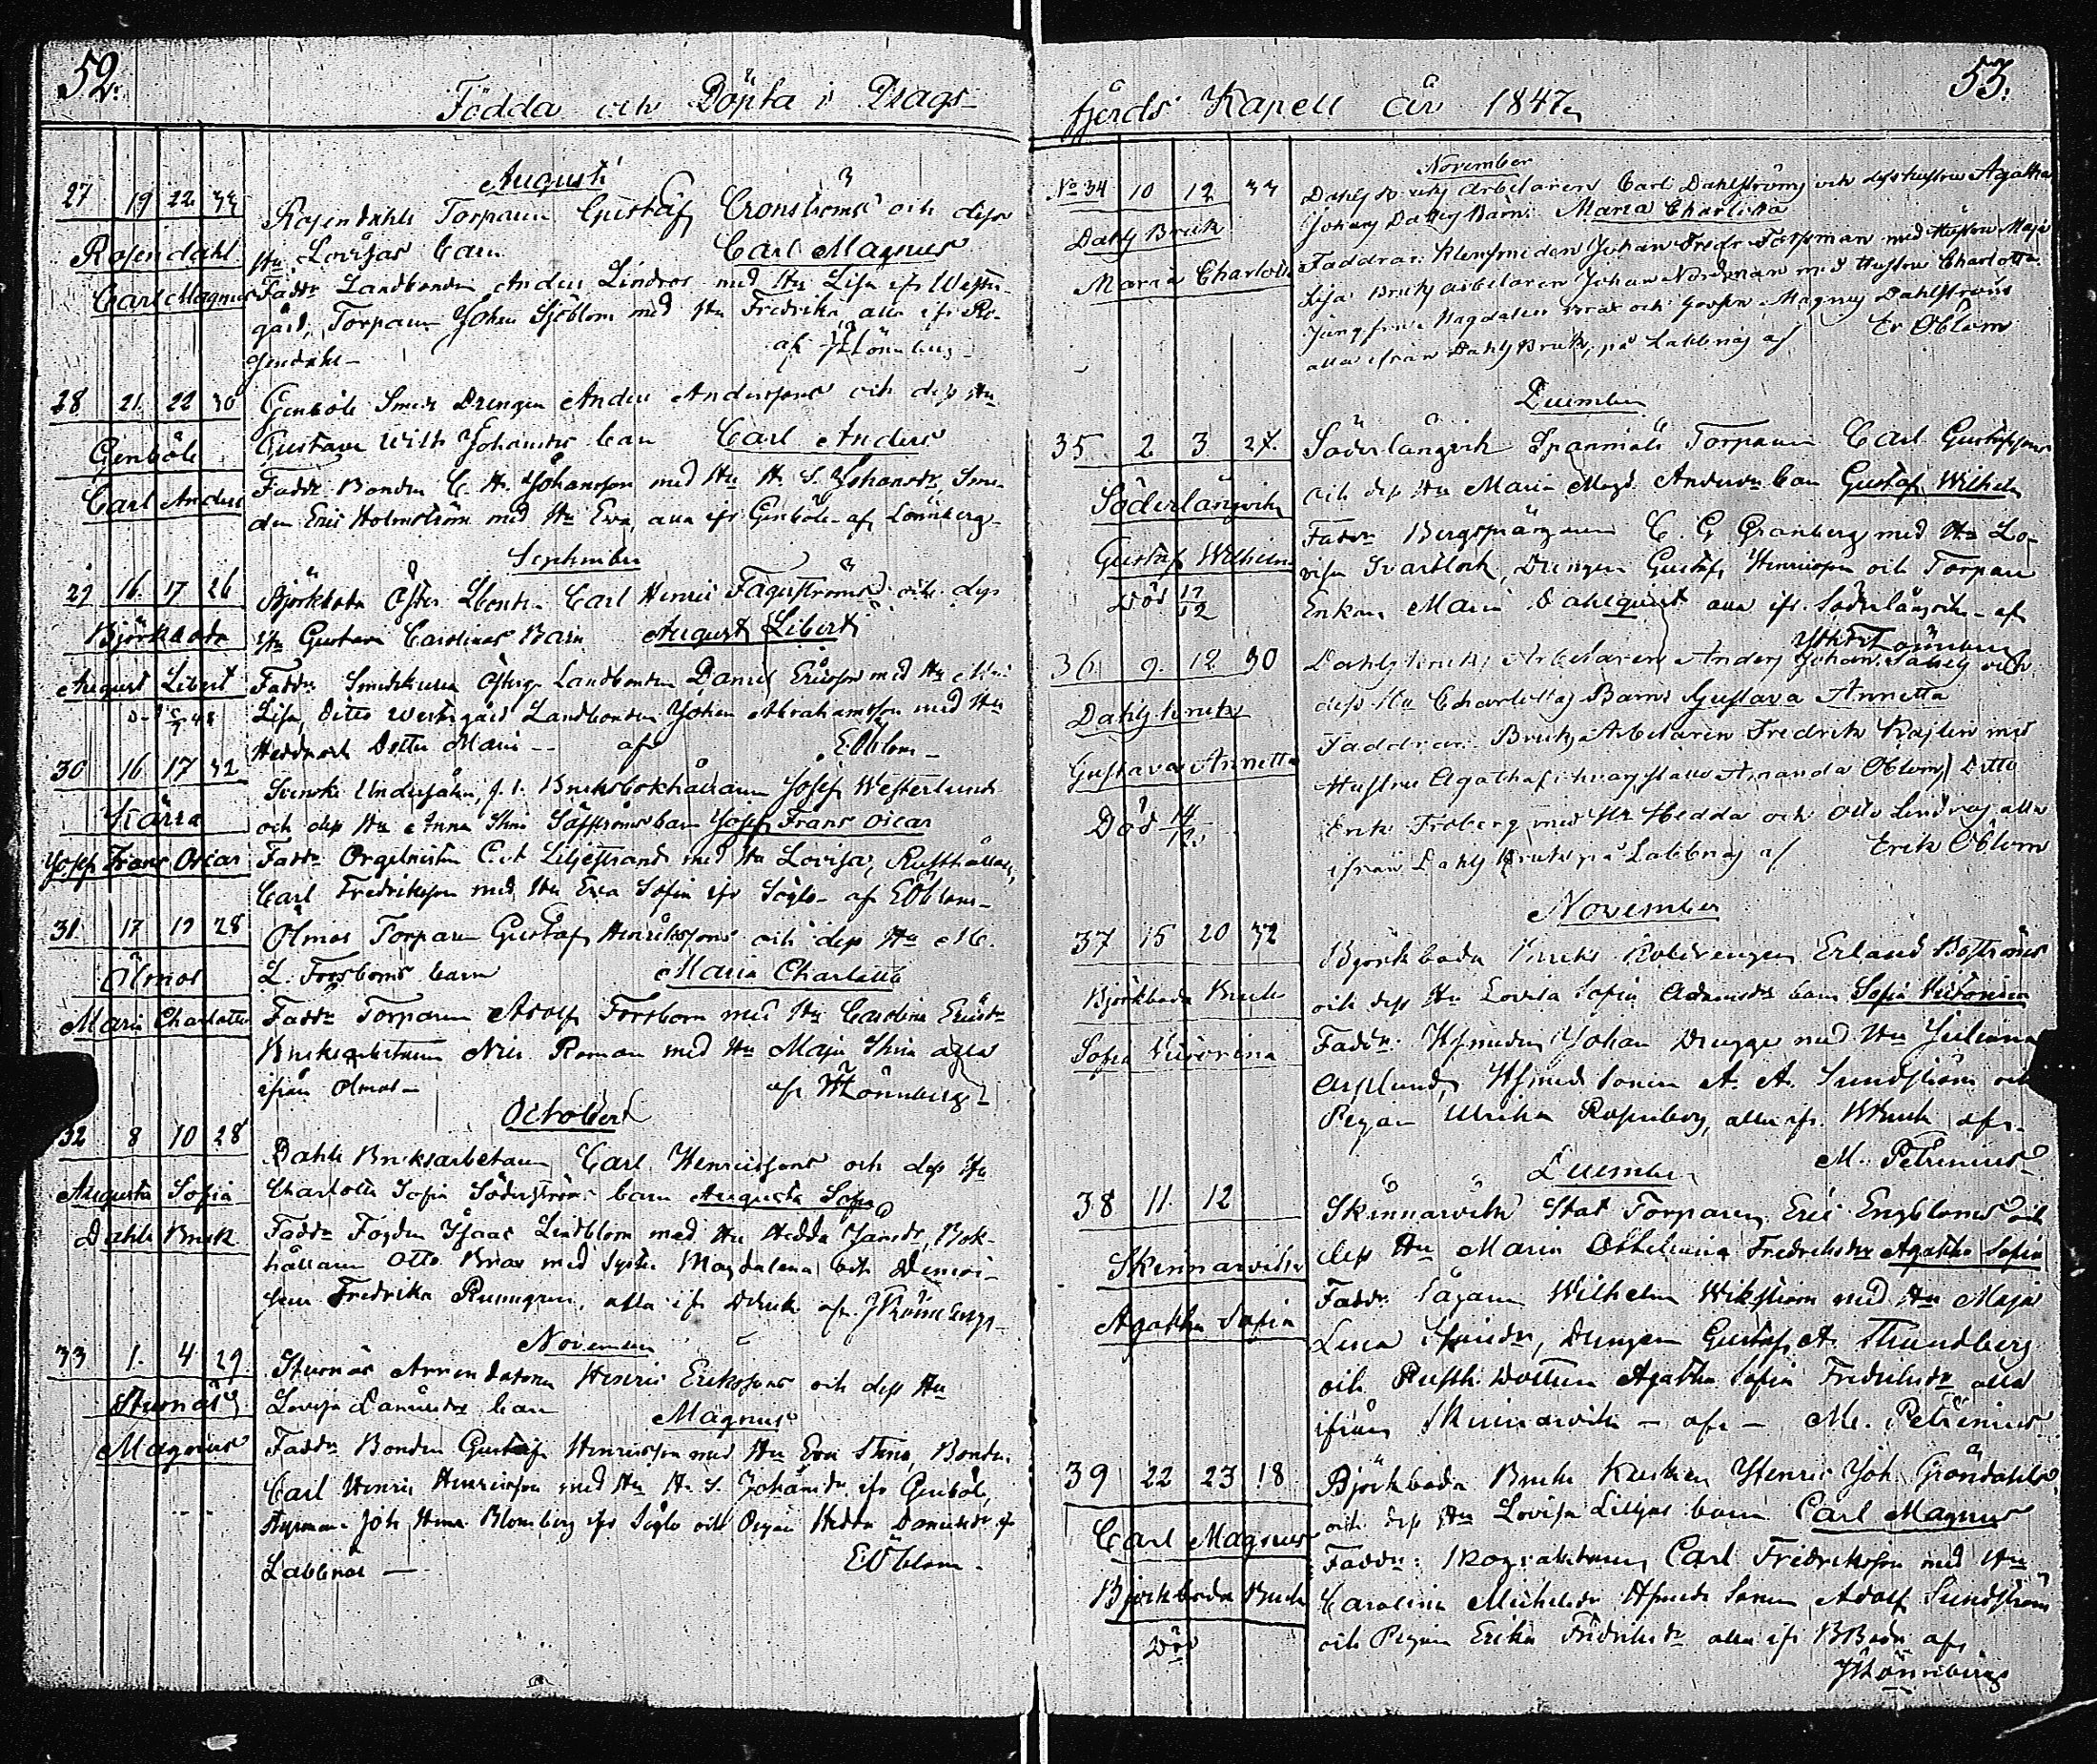 52.
Födda och Döpta i Drags-
Augusti
27 19 22 33
Rosendahl
Carl Magnus
Rosendahls Torparen Gustaf Cronströms och dess
Hu Lovisas barn Carl Magnus
Faddr Landbonden Anders Lindros med Hu Lisa ifr Westergård,
Torparen Johan Sjöblom med Hu Fredrika, alla ifr Rosendahl
af Lönnberg
28 21 22 30
Genböle
Carl Anders
Genböle Smeds Drengen Anders Anderssons och dess Hu
Gustava Wilh Johansdrs barn Carl Anders
Faddr Bonden C. H. Johansson med Hu H. S. Johansdr, Smeden
Eric Holmström med Hu Eva, alla ifr Genböle af Lönnberg
September
29 16 17 26
Björkboda
August Libert
Björkboda Öster Lbonden Carl Henric Fagerströms och dess
Hu Gustava Carolinas Barn August Libert
Faddr Landbonden Daniel Ericsson med Hu
Lisa, Ditto Westergård Landbonden Johan Abrahamsson med Hu
Hedda och Dotter Maria -- af EÖblom
30 16 17 32
Kärra
Josef Frans Oscar
Svenske Undersåten, f. d. Bruksbokhållaren Josef Westerlunds
och dess Hu Anna Stina Säfströms barn Josef Frans Oscar
Faddr Orgelnisten C. A. Liljestrand med Hu Lovisa, Rusthållaren
Carl Fredriksson med Hu Eva Sofia ifr Söglo - af EÖblom
31 17 19 28
Ölmos
Maria Charlotta
Ölmos Torparen Gustaf Henrikssons och dess Hu M.
L. Forsboms barn Maria Charlotta
Faddr Torparen Adolf Forsbom med Hu Carolina Ericsdr
Bruksarbetaren Nils Roman med Hu Maja Stina alla
ifrån Ölmos - af Lönnberg
October
32 8 10 28
Augusta Sofia
Dahls Bruk
Dahls Bruksarbetaren Carl Henricssons och dess Hu
Charlotta Sofia Söderströms barn Augusta Sofia
Faddr Fogden Isaac Lindblom med Hu Hedda Jansdr, Bokhållaren
Otto Brax med Syster Magdalena och
Fredrika Rumgren, alla ifr DBruk af Lönnberg
November
33 1. 4 29
Sturnäs
Magnus
Sturnäs Arrendatorn Henric Erikssons och dess Hu
Lovisa Danielsdrs barn Magnus
Faddr Bonden Gustaf Henricsson med Hu Eva Stina, Bonden
Carl Henric Henricsson med Hu H. S. Johansdr ifr Genböle,
Styrman Joh Henr Blomberg ifr Söglo och Pigan Hedda Danielsdr ifr
Labbnäs — EÖblom
53.
fjerds Kapell år 1847
November
No 34 10 12 33
Dahls Bruk
Maria Charlotta
Dahls Bruks arbetaren Carl Dahlströms och dess hustrus Agatha
Johans Dotters Barn Maria Charlotta
Faddrar: Klensmeden Johan Fredr Forsman med Hustru Maja
Lisa Bruks arbetaren Johan Nordman med Hustru Charlotta
Jungfru Magdalena Brax och Magnus Dahlström
alla ifrån Dahls Bruk, på Labbnäs af Er Öblom
December
35 2 3 27
Söderlångvik
Gustaf Wilhelm
Död 17/12
Söderlångvik Spannmåls Torparen Carl Gustafssons
och dess Hu Maria Magd. Andersdrs barn Gustaf Wilhelm
Faddr C. G Granberg med Hu Lovisa
Svartlock, Drengen Gustaf Henricsson och Torpare
Enkan Maria Dahlqvist alla ifr Söderlångvik - af
Lönnberg
36 9. 12 30
Dahls bruk
Gustava Annetta
Död
Dahls bruks Arbetaren Anders Johan och
dess Hu Charlottas Barn Gustava Annetta
Faddrar: Bruks Arbetaren Fredrik med
Hustru Agatha Amanda Öblom, Ditto
Erik Froberg med Hu Hedda och Otto Lindros alla
ifrån Dahls Bruk på Labbnäs af Erik Öblom
November
37 15 20 32
Björkboda Bruk
Sofia Victorina
Björkboda Bruks Koldrengen Erland Boströms
och dess Hu Lovisa Sofia Adamsdrs barn Sofia Victorina
Faddr: Hfsmeden Johan Drugge med Hu Juliana
Asplund, Hfsmed Sonen A. A. Sundström och
Pigan Ulrika Rosenberg, alla ifr. BBruk af
M. Petrenius
December
38 11. 12
Skinnarvik
Agatha Sofia
Skinnarviks Stat Torparen Eric Engbloms och
dess Hu Maria Fredriksdrs Agatha Sofia
Faddr: Sågaren Wilhelm Wikström med Hu Maja
Lena, Drengen Gustaf A. Thundberg
och Rusth. Dottern Agatha Sofia Fredriksdr alla
ifrån Skinnarvik - af - M. Petrenius
39 22 23 18
Carl Magnus
Björkboda Bruk
Död
Björkboda Bruks Kusken Henric Joh Gröndahls
och dess Hu Lovisa Liljas barn Carl Magnus
Faddr: Carl Fredriksson med Hu
Carolina Michelsdr Hfsmeds Sonen Adolf Sundström
och Pigan Erika Fredriksdr alla ifr BBoda af
Lönnberg